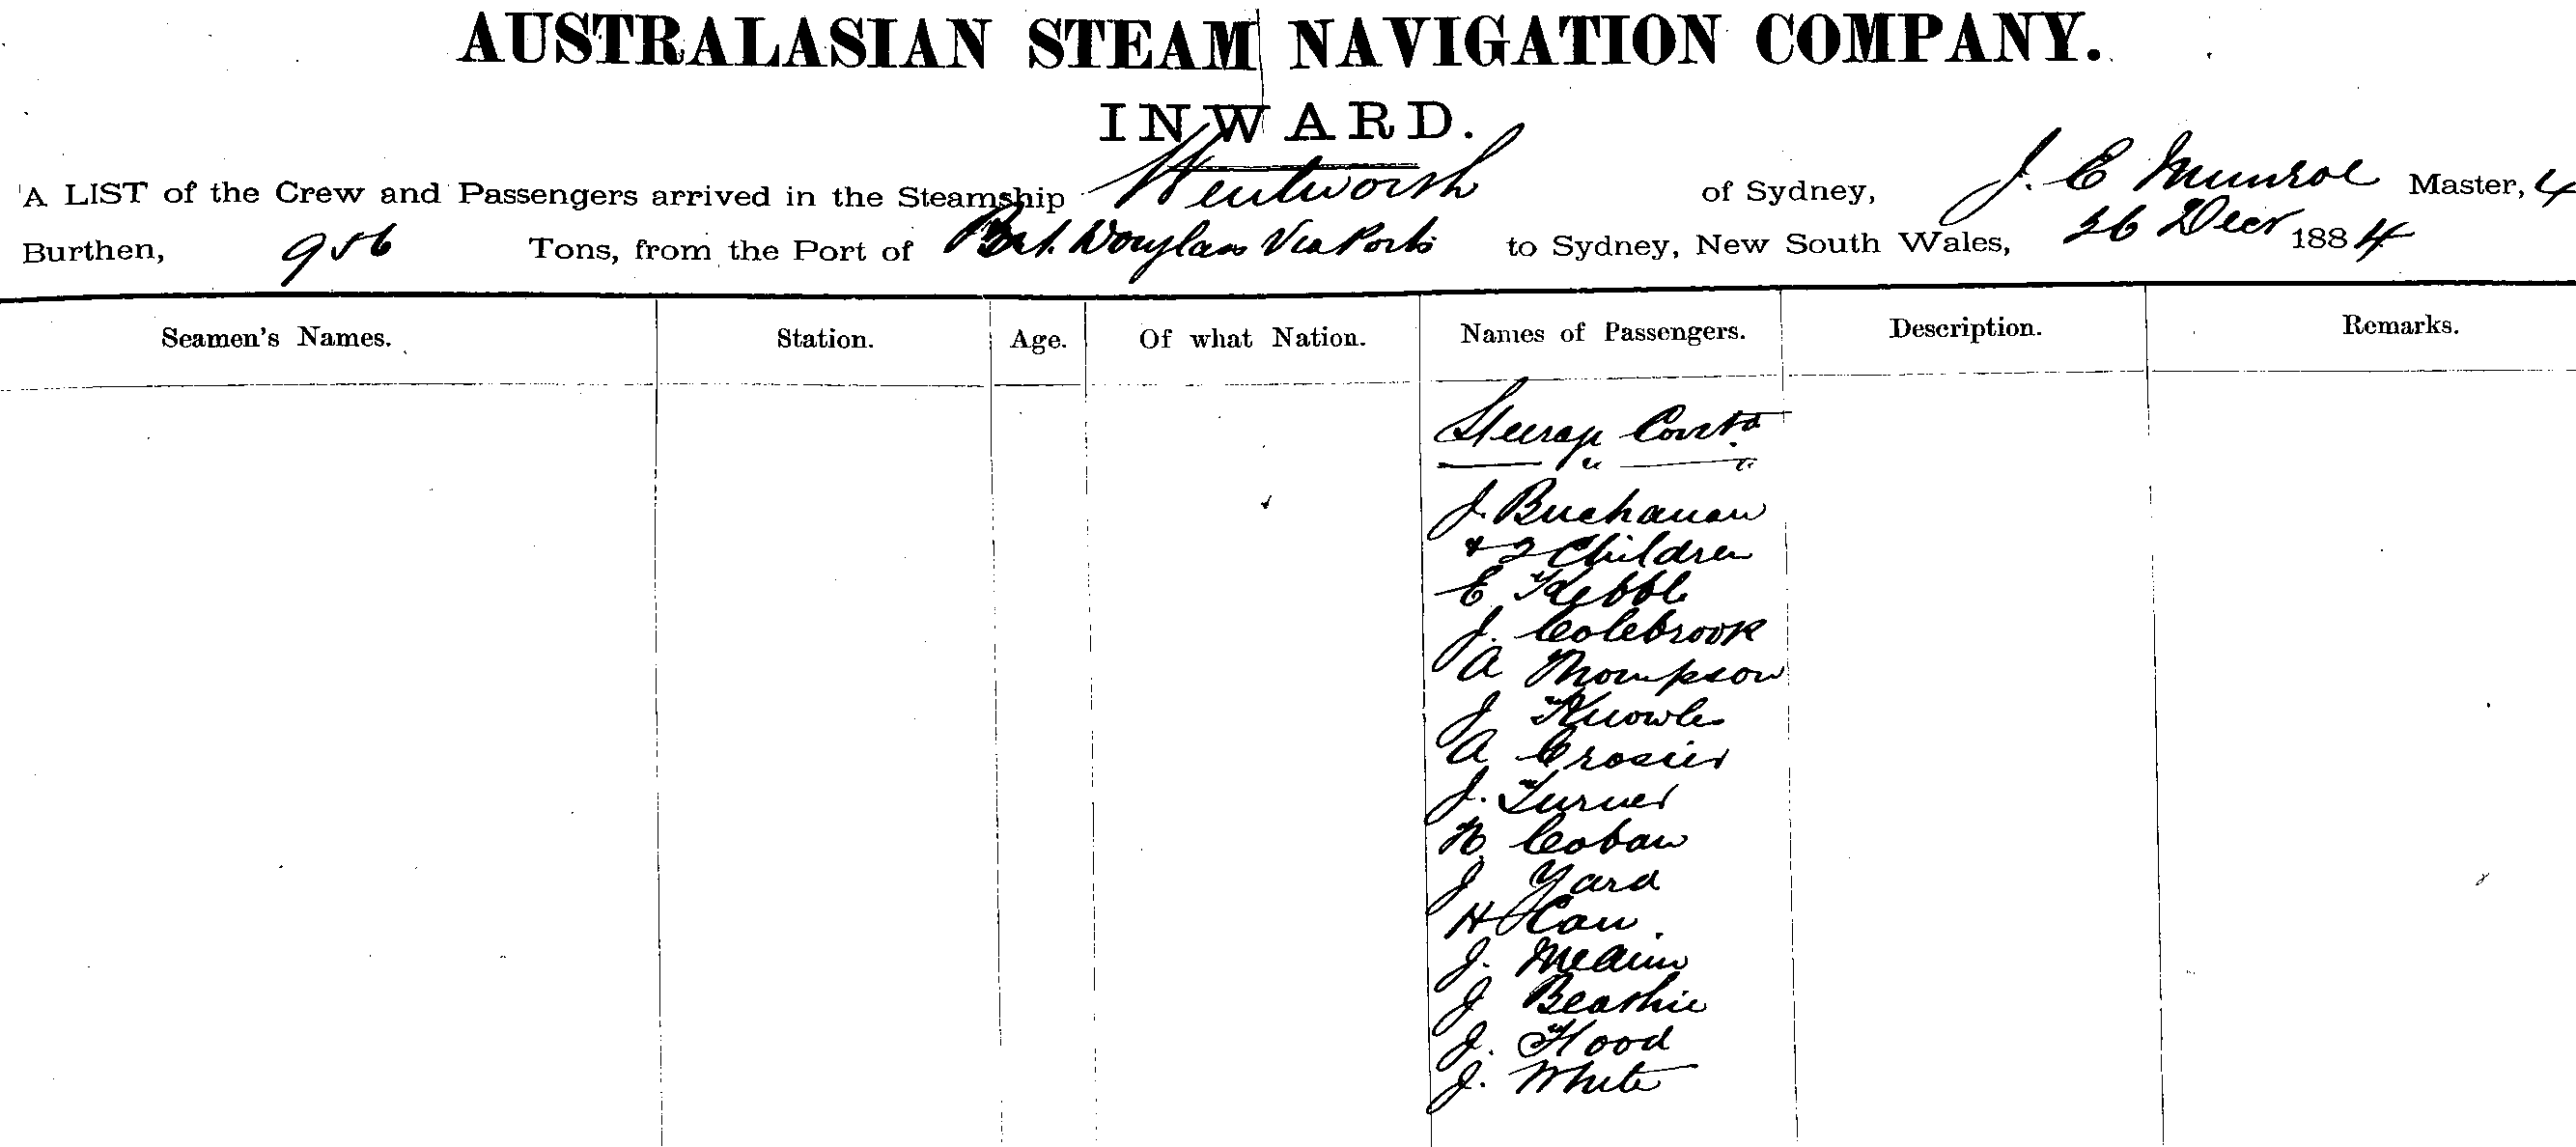 AUSTRALASIAN STEAM NAVIGATION COMPANY.
INWARD.
A LIST of the Crew and Passengers arrived in the Steamship Wentworth of Sydney, J. E Munroe Master, 4
Burthen, 956 Tons, from the Port of Port Douglas Via Ports to Sydney, New South Wales, 26 Decr 1884
Seamen's Names. Station. Age. Of what Nation. Names of Passengers. Description. Remarks.
Steerage Contd
J. Buchanan
+ 2 Children
E Kebble
J. Colebrook
A Thompson
J Knowles
A Crosier
J. Turner
N Coban
J Yard
H
J.
J Beathie
J. Hood
J. White